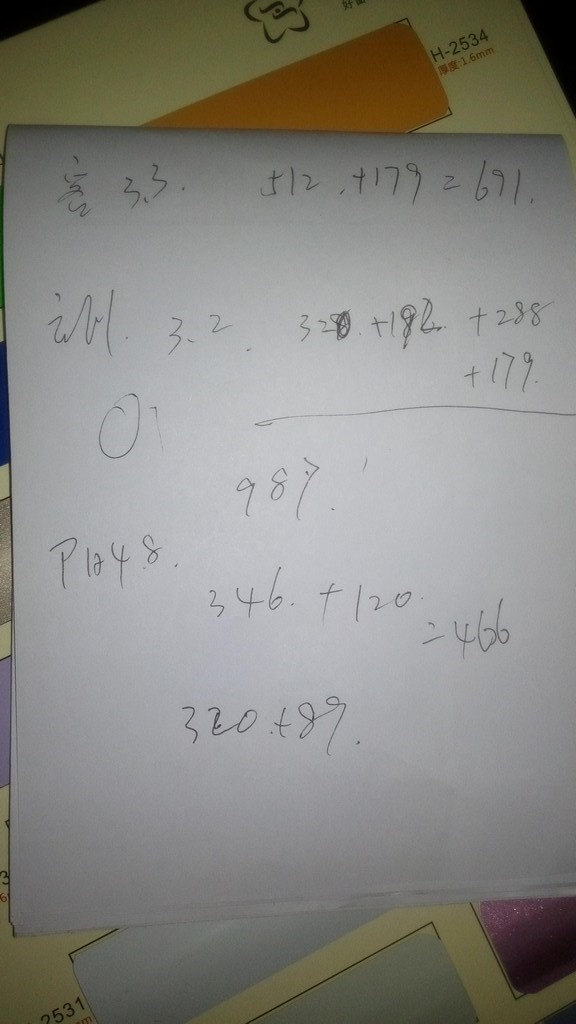 H-2534
厚度:1.6mm
客 3.3. 512.+179=691.
3.2. 320.+182.+288
+179.
987.
346.+120.
=466
320.+89.
2531